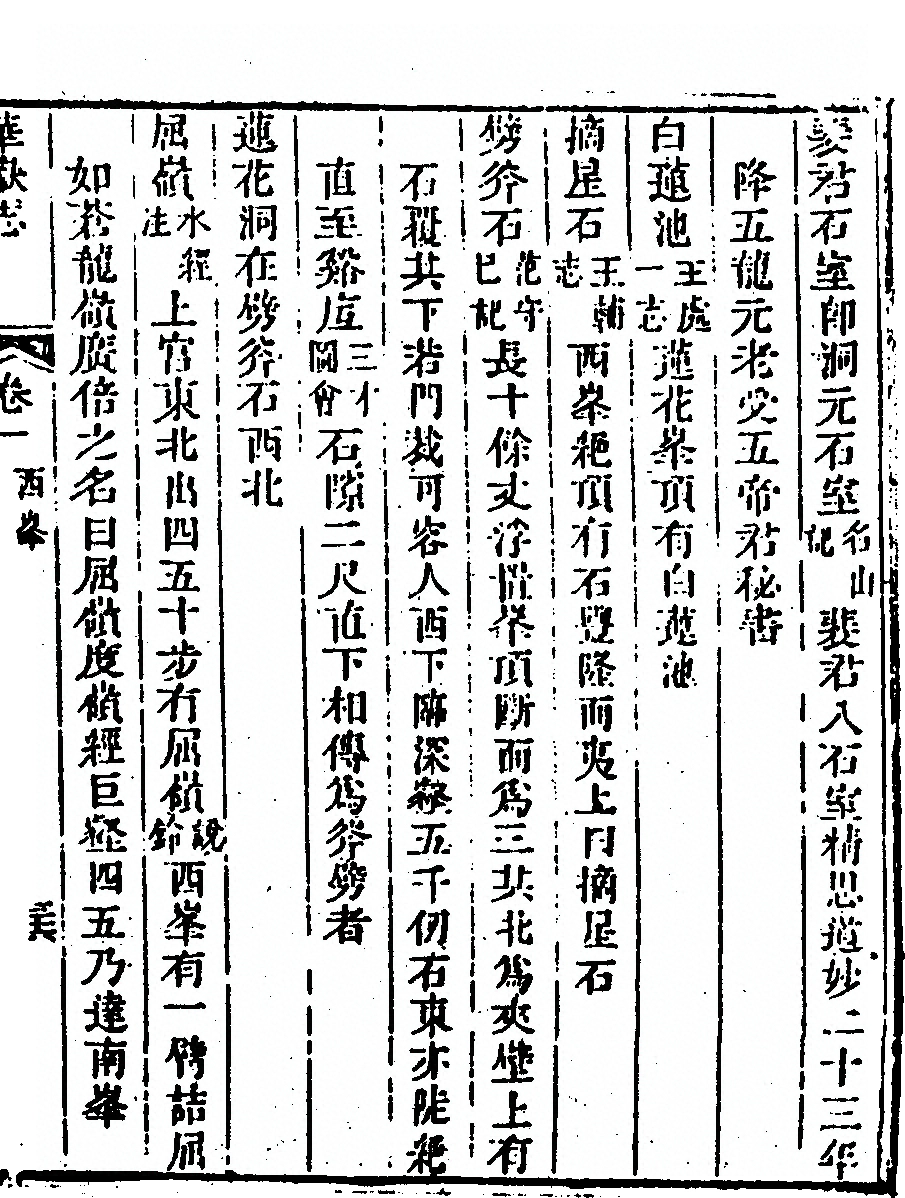 裴君石室即洞元石室名山記裴君入石室精思道妙二十三年
降五龍元老受五帝君秘書
白蓮池王處一志蓮花峯頂有白蓮池
摘星石王輔志西峯絕頂有石豐隆而夷上曰摘星石
劈斧石范守己記長十餘丈浮置峯頂斷而爲三其北爲夾壁上有
石覆其下若門裁可容人西下臨深壑五千仞右東亦陡絕
直至谿底三才圖會石隙二尺直下相傳爲斧劈者
蓮花洞在劈斧石西北
屈嶺水經注上宮東北出四五十步有屈嶺說鈴西峯有一臂詰屈
如蒼龍嶺廣倍之名曰屈嶺度嶺經巨壑四五乃達南峯
華嶽志 卷一 西峯